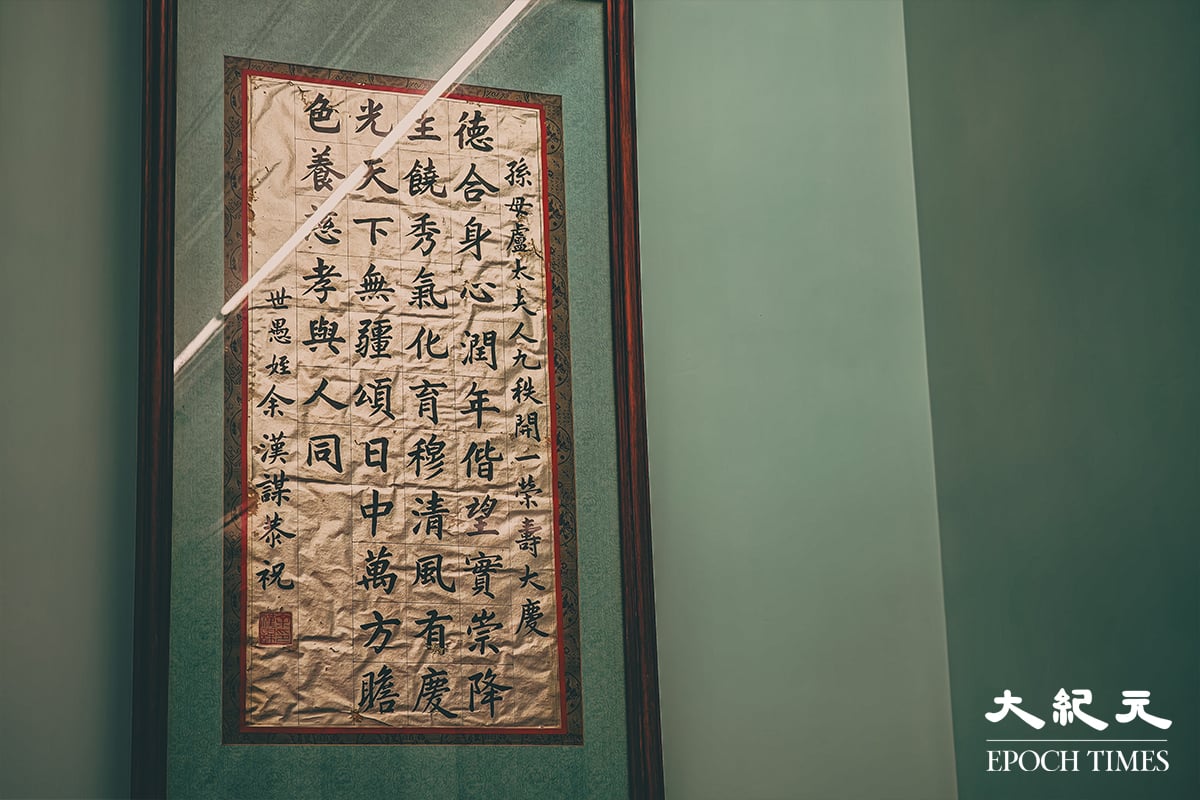 孫母盧太夫人九秩開一榮壽大慶
德合身心潤年偕望實崇降
生饒秀氣化育穆清風有慶
光天下無疆頌日中萬方瞻
色養慈孝與人同
世愚姪余漢謀恭祝
大紀元
EPOCH TIMES